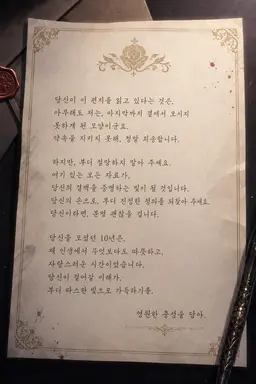 당신이 이 편지를 읽고 있다는 것은,
아무래도 저는, 마지막까지 곁에서 모시지
못하게 된 모양이군요.
약속을 지키지 못해, 정말 죄송합니다.
하지만, 부디 절망하지 말아 주세요.
여기 있는 모든 자료가,
당신의 결백을 증명하는 빛이 될 것입니다.
당신의 손으로, 부디 진정한 정의를 되찾아 주세요.
당신이라면, 분명 괜찮을 겁니다.
당신을 모셨던 10년은,
제 인생에서 무엇보다도 따뜻하고,
사랑스러운 시간이었습니다.
당신이 걸어갈 미래가,
부디 따스한 빛으로 가득하기를.
영원한 충성을 담아.